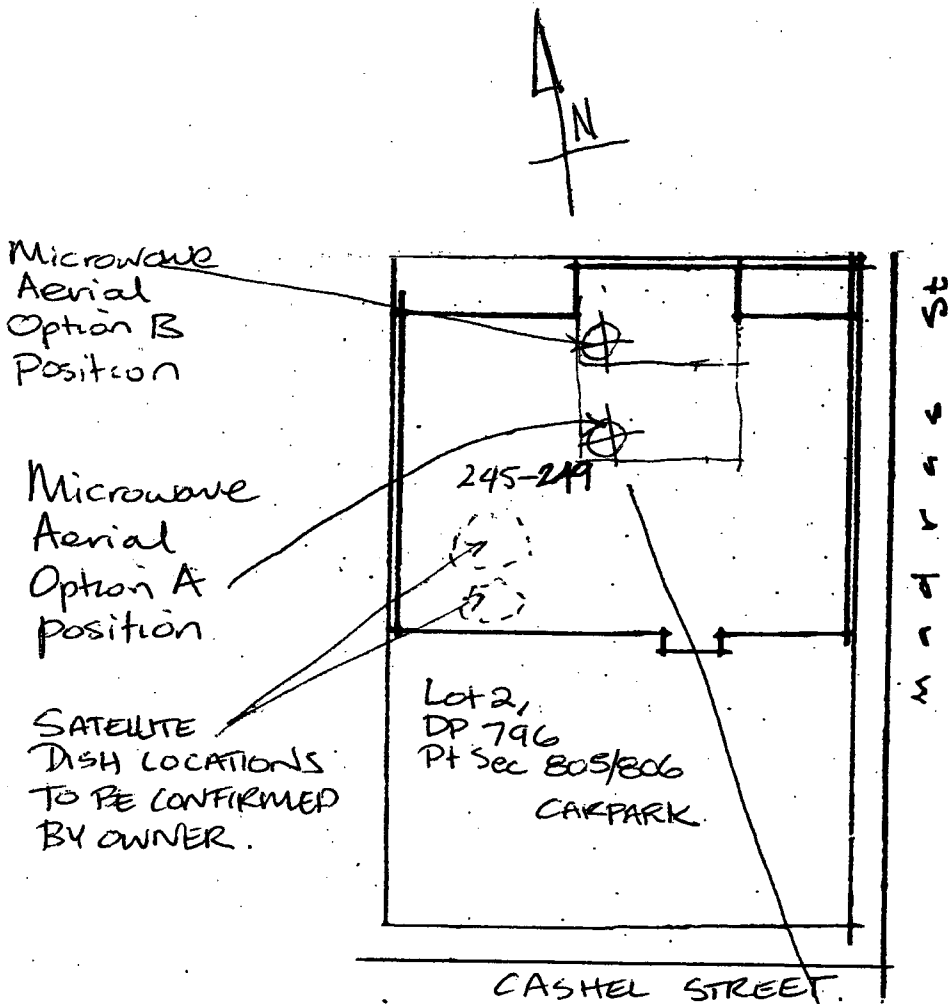 N
Microwave
Aerial
Option B
Position
Madras St
Microwave
Aerial
Option A
position
245-249
SATELLITE
DISH LOCATIONS
TO BE CONFIRMED
BY OWNER.
Lot 2,
DP 796
Pt Sec 805/806
CARPARK
CASHEL STREET.